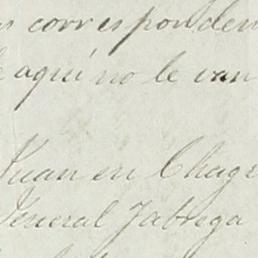 corresponden
aquí no le van
Juan en Chagr
General Fabrega